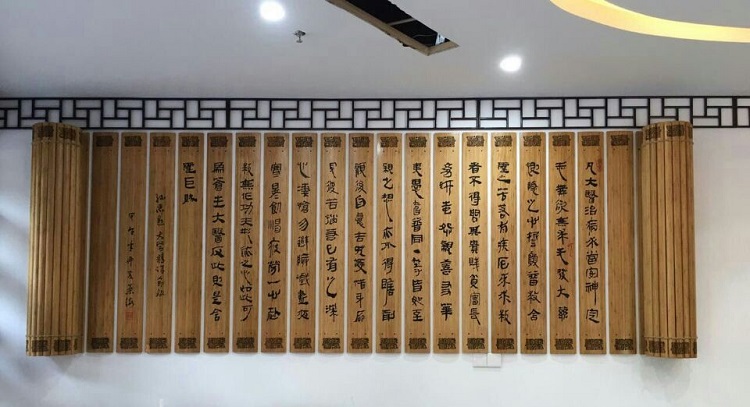 凡大醫治病必當安神定
志無欲無求先發大慈
惻隱之心誓願普救含
靈之苦若有疾厄來求救
者不得問其貴賤貧富長
幼妍蚩怨親善友華
夷愚智普同一等皆如至
親之想亦不得瞻前
顧後自慮吉凶護惜身命
見彼苦惱若己有之深
心凄愴勿避險巇晝夜
寒暑飢渴疲勞一心赴
救無作功夫形迹之心如此可
為蒼生大醫反此則是含
靈巨賊
孫思邈大醫精誠
甲午